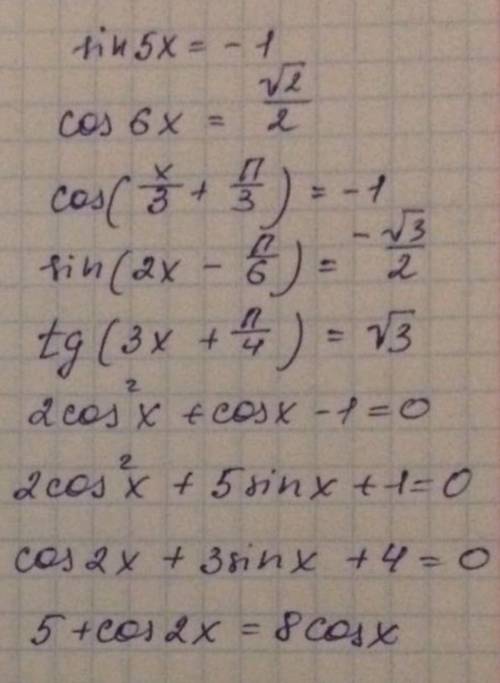 sin 5x = -1
cos 6x = √2/2
cos(x/3 + π/3) = -1
sin(2x - π/6) = -√3/2
tg(3x + π/4) = √3
2cos²x + cosx - 1 = 0
2cos²x + 5sinx + 1 = 0
cos2x + 3sinx + 4 = 0
5 + cos2x = 8cosx